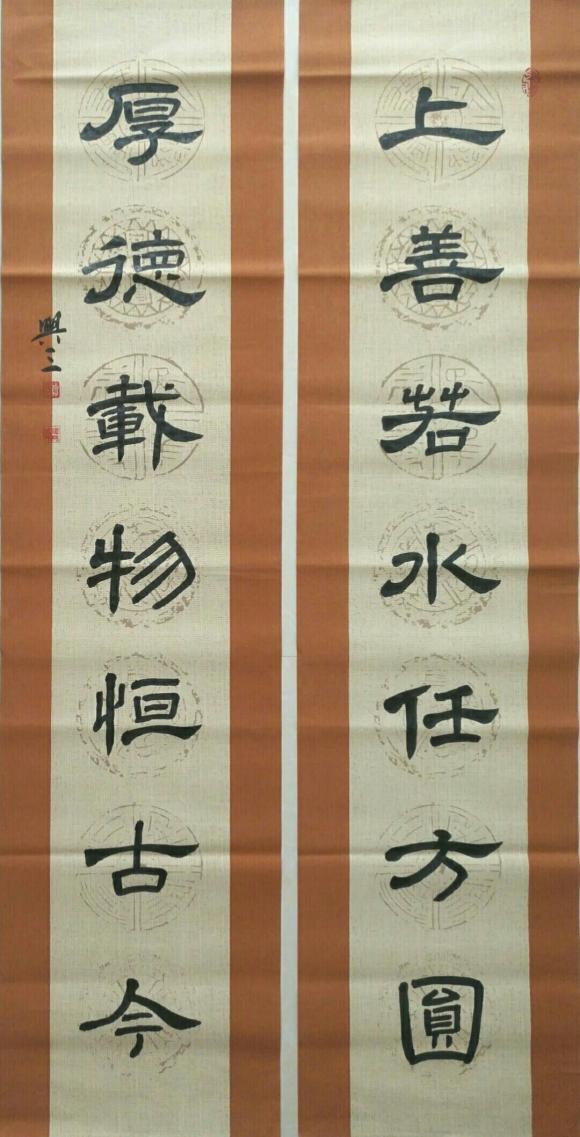 上善若水任方圓
厚德載物恒古今
興三